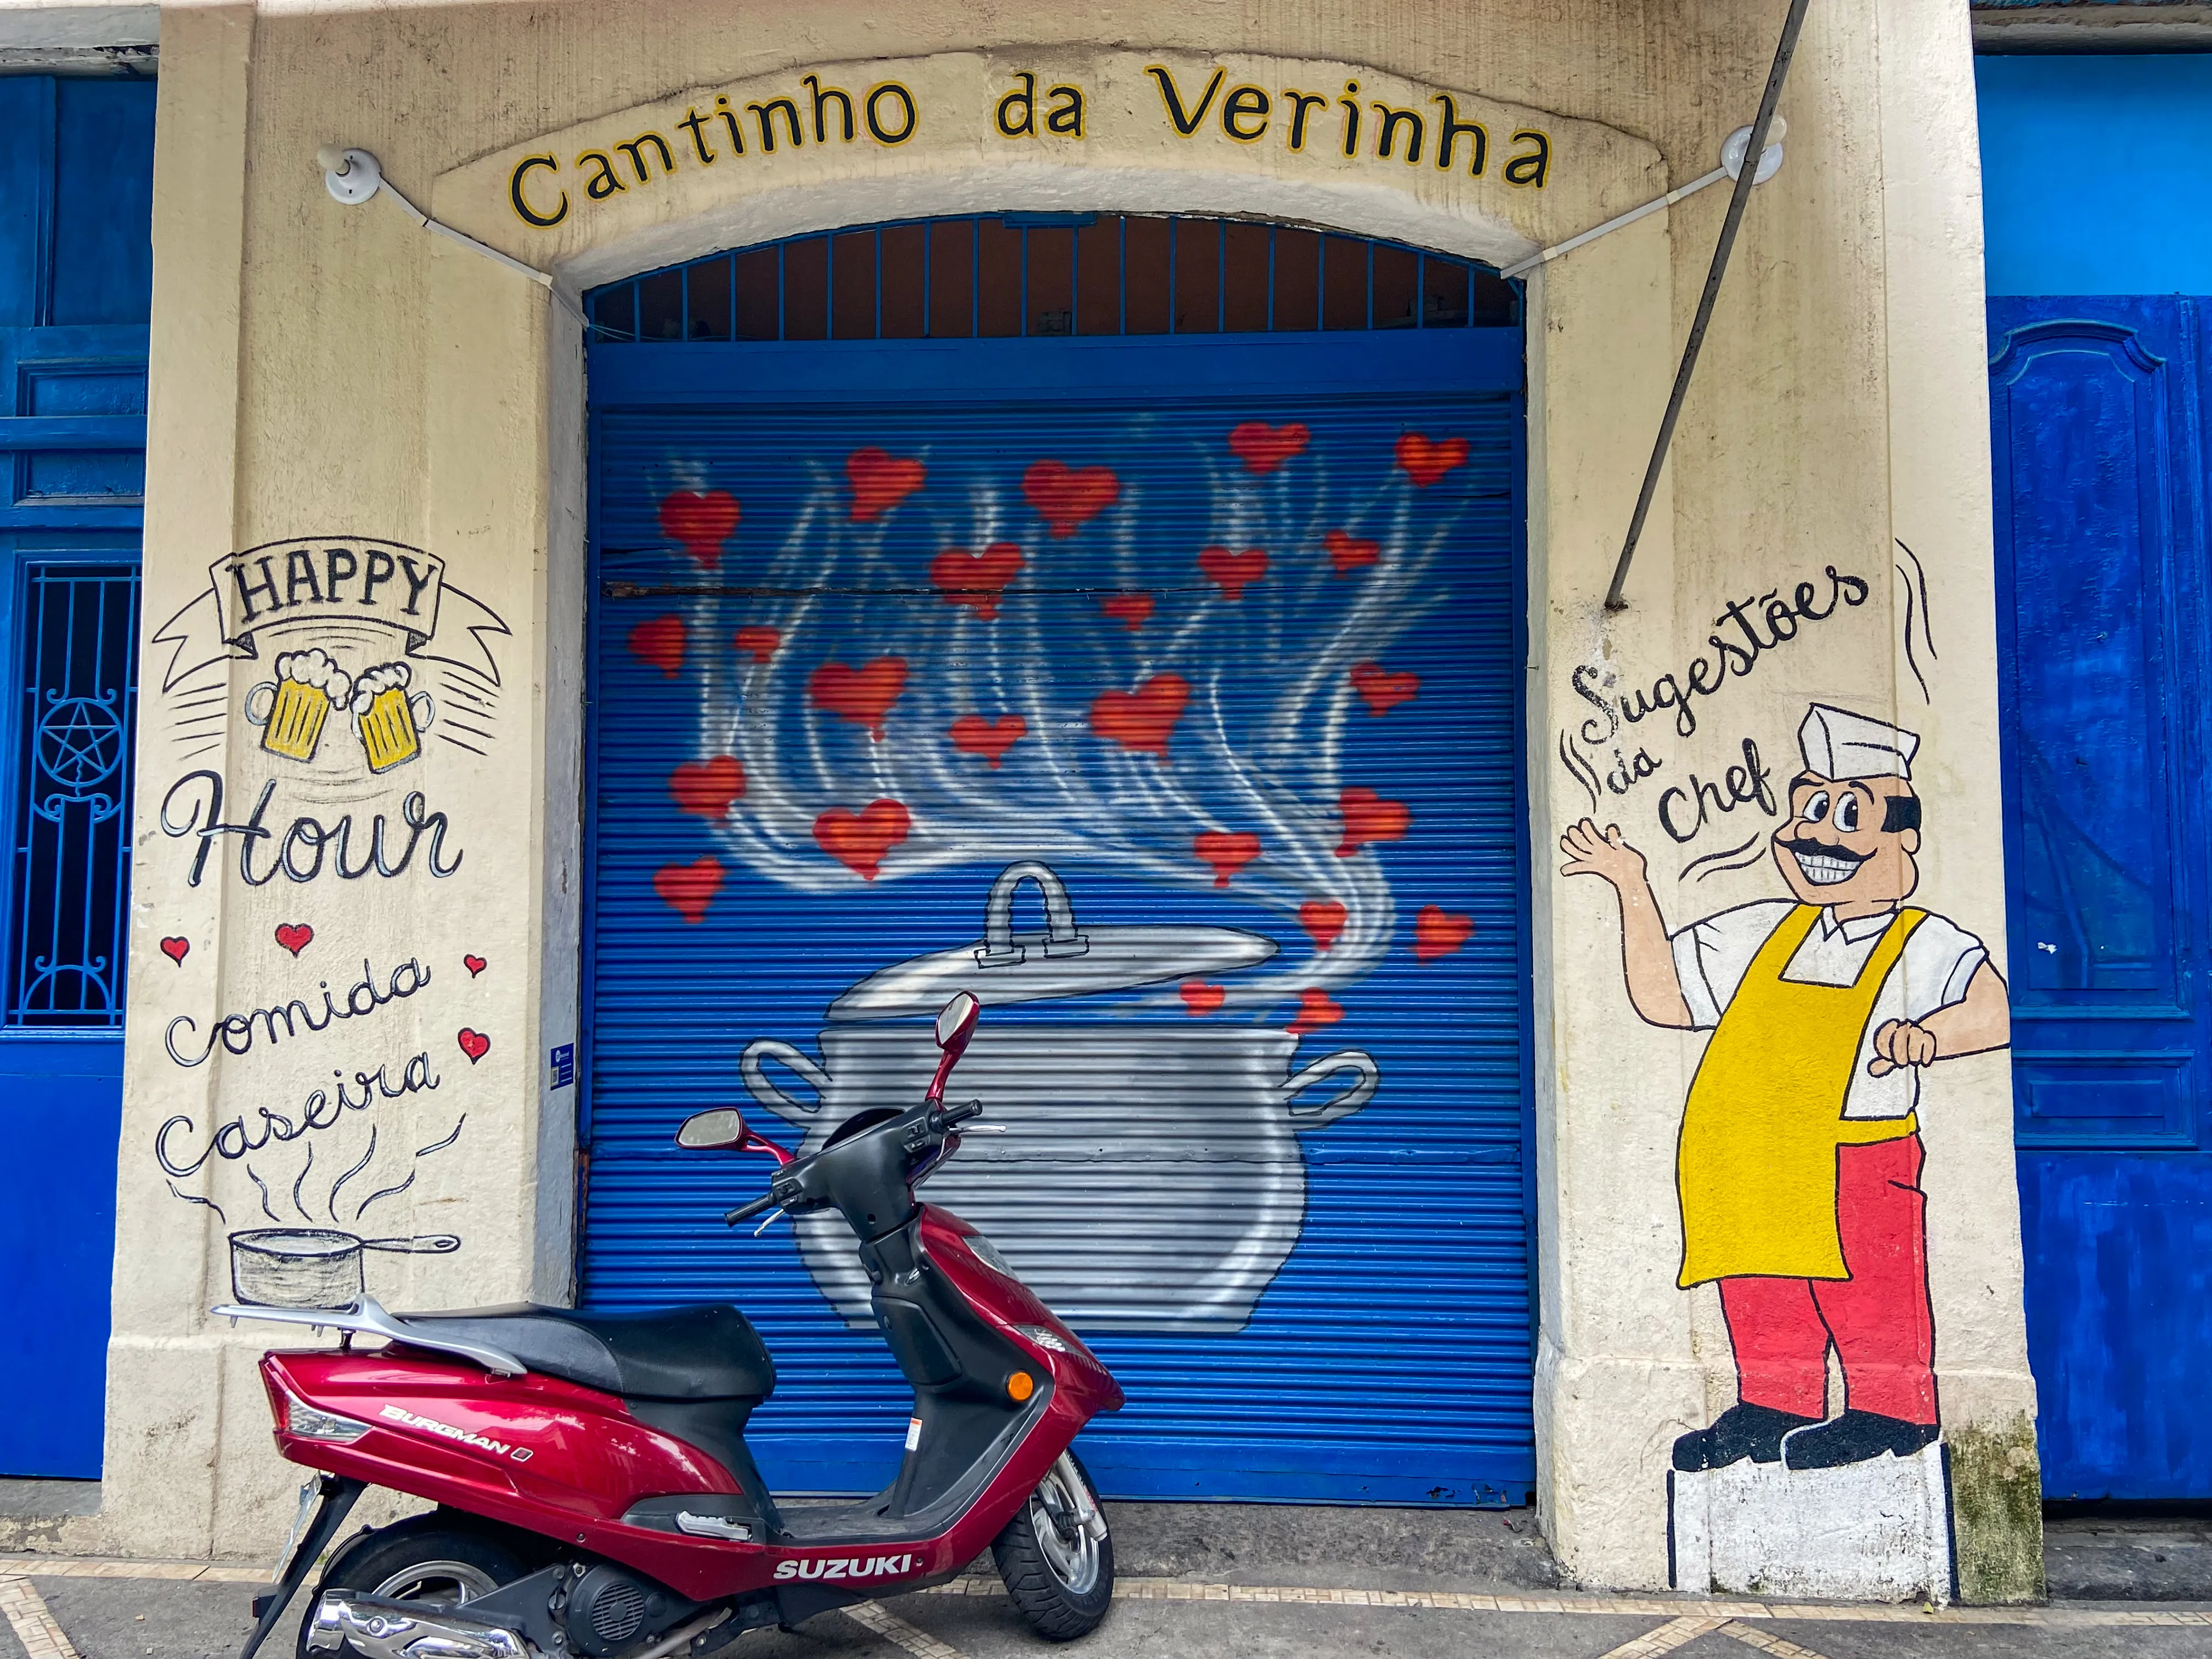 Cantinho da Verinha
HAPPY
Hour
Comida
Caseira
Sugestões
da
Chef
BURGMAN
SUZUKI